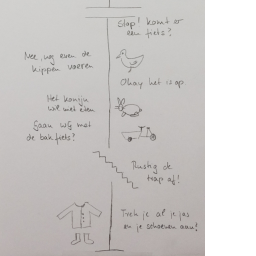 Stop! komt er
een fiets?
Nee, wij even de
kippen voeren
Okay het is op
Het konijn
wil met eten
Gaan wij met
de bakfiets?
Rustig de
trap af!
Trek je al je jas
en je schoenen aan?